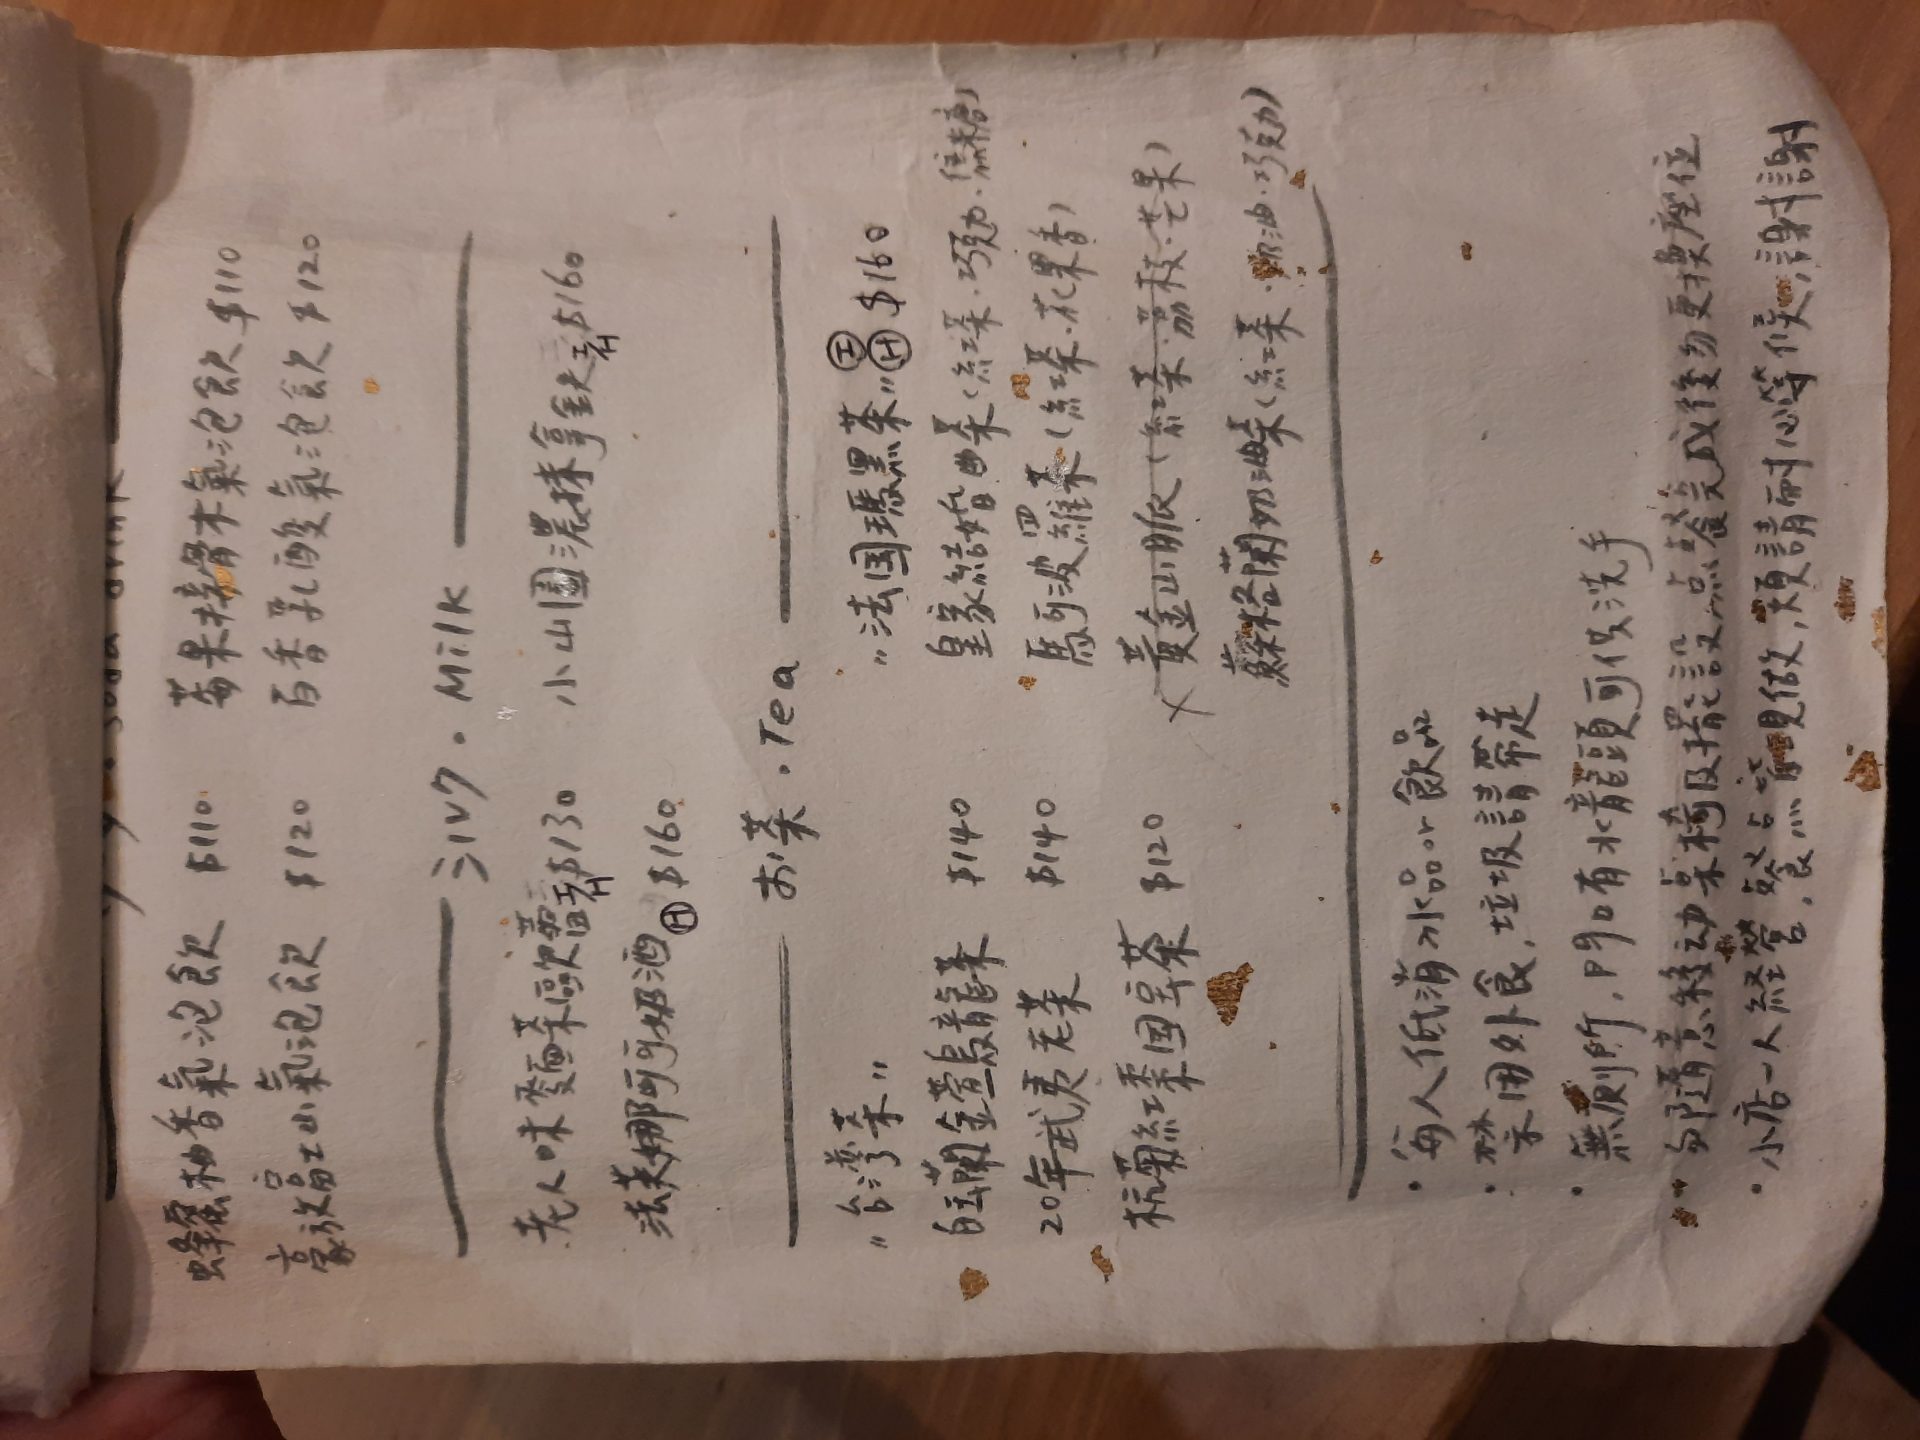 ソーダ・soda drink
蜂蜜柚香氣泡飲 $110 莓果接骨木氣泡飲 $110
豪放富士山氣泡飲 $120 百香乳酸氣泡飲 $120
ミルク・Milk
老人味麵茶歐蕾 I/H $130 小山園濃抹拿鉄 I/H $160
法芙娜可可奶酒 H $160
お茶・Tea
"台灣茶" "法国瑪黑茶" I H $160
白玉蘭金萱烏龍茶 $140 皇家結婚曲茶(紅茶・巧克力・焦糖)
20年武夷老茶 $140 馬可波羅維茶(紅茶・花果香)
杭菊紅棗国宝茶 $120 x 黃金山脈(紅茶・荔枝・芒果)
蘇格蘭奶油茶(紅茶・奶油・巧克力)
・每人低消冰品or飲品
・禁用外食,垃圾請帶走
・無廁所,門口有水龍頭可供洗手
・勿隨意移动桌椅及擺設,点餐完成後勿更換座位
・小店一人経營,餐点皆現做,煩請耐心等候,謝謝